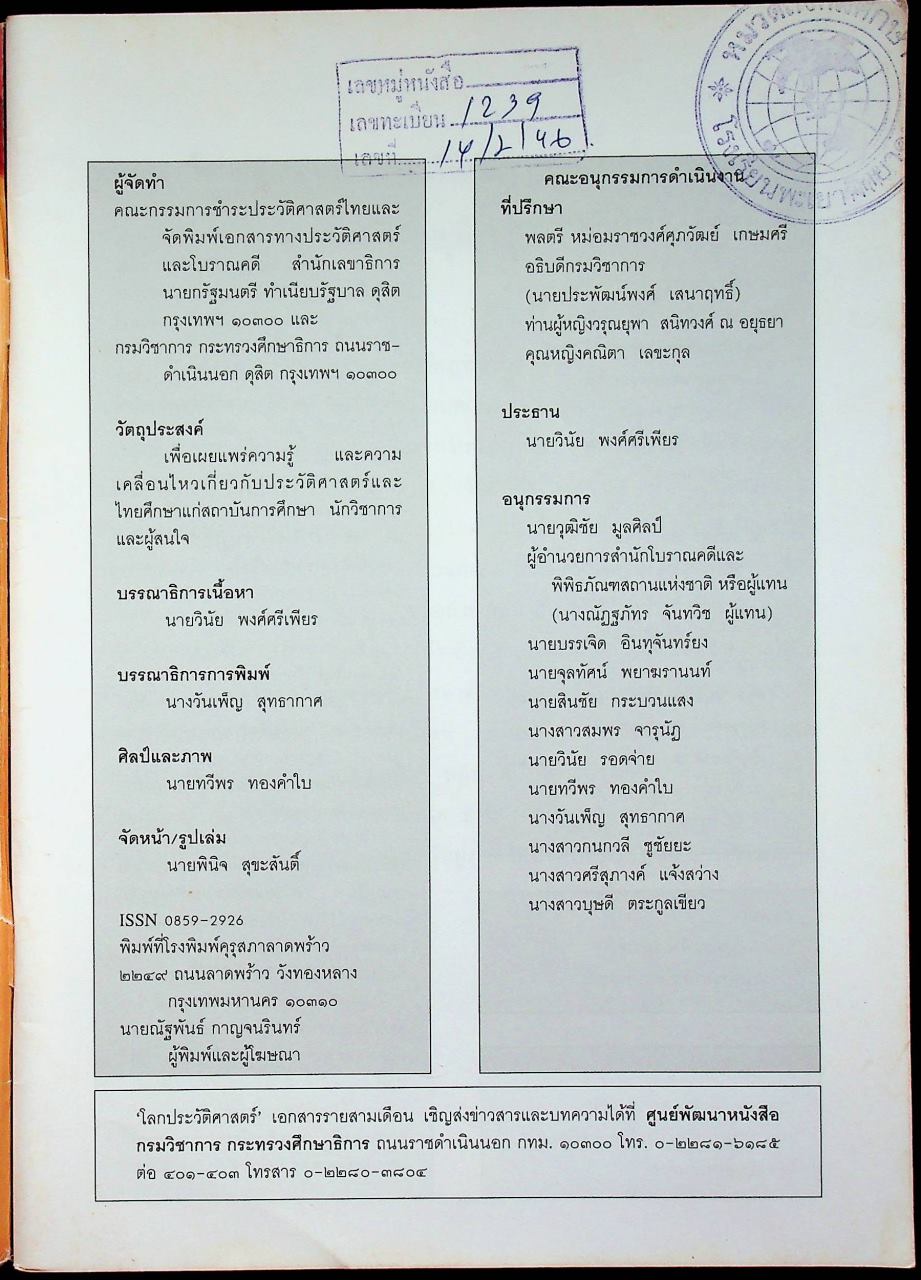 เลขหมู่หนังสือ
เลขทะเบียน 1239
เลขที่ 14/2/46
ผู้จัดทำ
คณะกรรมการชำระประวัติศาสตร์ไทยและ
จัดพิมพ์เอกสารทางประวัติศาสตร์
และโบราณคดี สำนักเลขาธิการ
นายกรัฐมนตรี ทำเนียบรัฐบาล ดุสิต
กรุงเทพฯ ๑๐๓๐๐ และ
กรมวิชาการ กระทรวงศึกษาธิการ ถนนราช-
ดำเนินนอก ดุสิต กรุงเทพฯ ๑๐๓๐๐
วัตถุประสงค์
เพื่อเผยแพร่ความรู้ และความ
เคลื่อนไหวเกี่ยวกับประวัติศาสตร์และ
ไทยศึกษาแก่สถาบันการศึกษา นักวิชาการ
และผู้สนใจ
บรรณาธิการเนื้อหา
นายวินัย พงศ์ศรีเพียร
บรรณาธิการการพิมพ์
นางวันเพ็ญ สุทธากาศ
ศิลป์และภาพ
นายทวีพร ทองคำใบ
จัดหน้า/รูปเล่ม
นายพินิจ สุขะสันติ์
ISSN 0859-2926
พิมพ์ที่โรงพิมพ์คุรุสภาลาดพร้าว
๒๒๔๙ ถนนลาดพร้าว วังทองหลาง
กรุงเทพมหานคร ๑๐๓๑๐
นายณัฐพันธ์ กาญจนรินทร์
ผู้พิมพ์และผู้โฆษณา
คณะอนุกรรมการดำเนินงาน
ที่ปรึกษา
พลตรี หม่อมราชวงศ์ศุภวัฒย์ เกษมศรี
อธิบดีกรมวิชาการ
(นายประพัฒน์พงศ์ เสนาฤทธิ์)
ท่านผู้หญิงวรุณยุพา สนิทวงศ์ ณ อยุธยา
คุณหญิงคณิตา เลขะกุล
ประธาน
นายวินัย พงศ์ศรีเพียร
อนุกรรมการ
นายวุฒิชัย มูลศิลป์
ผู้อำนวยการสำนักโบราณคดีและ
พิพิธภัณฑสถานแห่งชาติ หรือผู้แทน
(นางณัฏฐภัทร จันทวิช ผู้แทน)
นายบรรเจิด อินทุจันทร์ยง
นายจุลทัศน์ พยาฆรานนท์
นายสินชัย กระบวนแสง
นางสาวสมพร จารุนัฎ
นายวินัย รอดจ่าย
นายทวีพร ทองคำใบ
นางวันเพ็ญ สุทธากาศ
นางสาวกนกวลี ชูชัยยะ
นางสาวศรีสุภางค์ แจ้งสว่าง
นางสาวบุษดี ตระกูลเขียว
'โลกประวัติศาสตร์' เอกสารรายสามเดือน เชิญส่งข่าวสารและบทความได้ที่ ศูนย์พัฒนาหนังสือ
กรมวิชาการ กระทรวงศึกษาธิการ ถนนราชดำเนินนอก กทม. ๑๐๓๐๐ โทร. ๐-๒๒๘๑-๖๑๘๕
ต่อ ๔๐๑-๔๐๓ โทรสาร ๐-๒๒๘๐-๓๘๐๔